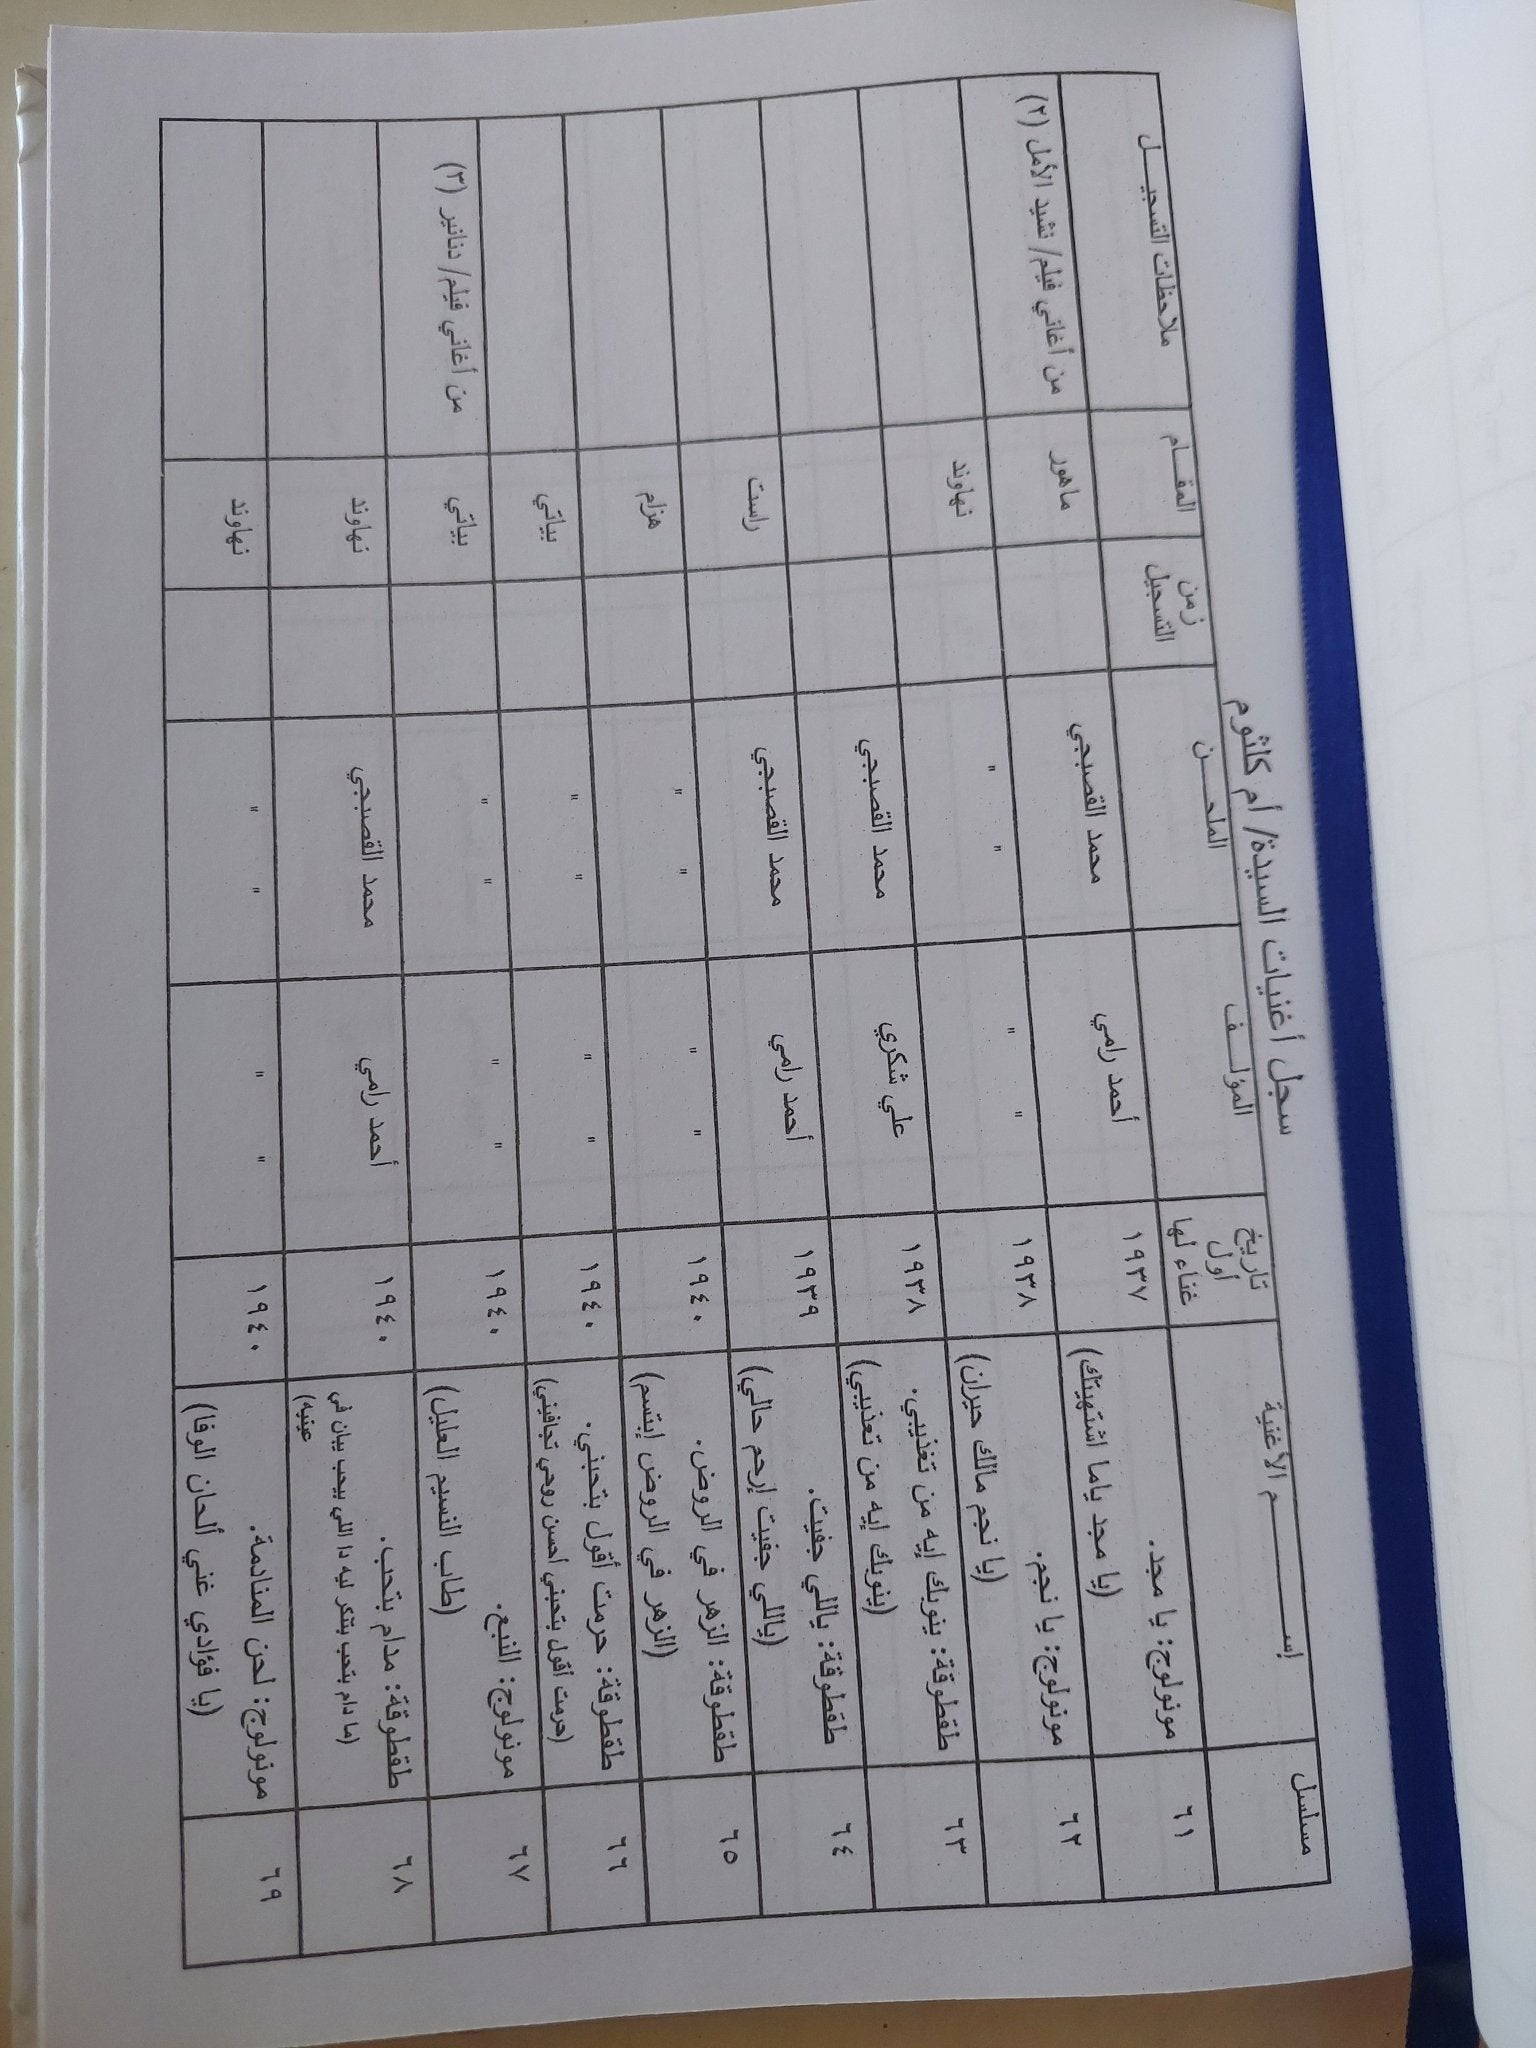 سجل أغنيات السيدة/ أم كلثوم
مسلسل إســـــــم الأغنية تاريخ أول غناء لها المؤلـــف الملحـــن زمن التسجيل المقــام ملاحظات التسجيـــل
٦١ مونولوج: يا مجد. ١٩٣٧ أحمد رامي محمد القصبجي ماهور من أغاني فيلم/ نشيد الأمل (٢)
(يا مجد ياما اشتهيتك)
٦٢ مونولوج: يا نجم. ١٩٣٨ " " " " نهاوند
(يا نجم مالك حيران)
٦٣ طقطوقة: ينوبك إيه من تغذيبي. ١٩٣٨ علي شكري محمد القصبجي
(ينوبك إيه من تعذيبي)
٦٤ طقطوقة: ياللي جفيت. ١٩٣٩ أحمد رامي محمد القصبجي راست
(ياللي جفيت إرحم حالي)
٦٥ طقطوقة: الزهر في الروض. ١٩٤٠ " " " " هزام
(الزهر في الروض إبتسم)
٦٦ طقطوقة: حرمت أقول بتحبني. ١٩٤٠ " " " " بياتي
(حرمت أقول بتحبني أحسن روحي تجافيني)
٦٧ مونولوج: النبع. ١٩٤٠ " " " " بياتي من أغاني فيلم/ دنانير (٣)
(طاب النسيم العليل)
٦٨ طقطوقة: مدام بتحب. ١٩٤٠ أحمد رامي محمد القصبجي نهاوند
(ما دام بتحب بتنكر ليه دا اللي بيحب يبان في
عينيه)
٦٩ مونولوج: لحن المنادمة. ١٩٤٠ " " " " نهاوند
(يا فؤادي غني ألحان الوفا)